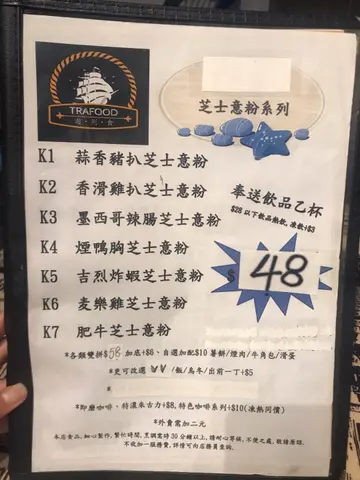 TRAFOOD
芝士意粉系列
K1 蒜香豬扒芝士意粉
K2 香滑雞扒芝士意粉
K3 墨西哥辣腸芝士意粉
K4 煙鴨胸芝士意粉
K5 吉烈炸蝦芝士意粉
K6 麥樂雞芝士意粉
K7 肥牛芝士意粉
奉送飲品乙杯
$28 以下飲品熱飲, 凍飲+$3
$48
*各類雙拼$58 加底+$6、自選加配$10 薯餅/煙肉/牛角包/滑蛋
*更可改選 /飯/烏冬/出前一丁+$5
*即磨咖啡、特濃朱古力+$8, 特色咖啡系列+$10(凍熱同價)
*外賣需加二元
本店食品, 細心製作, 繁忙時間, 烹調需時 30 分鐘以上, 請耐心等候, 不便之處, 敬請原諒.
不收加一服務費, 詳情可向店務員查詢.